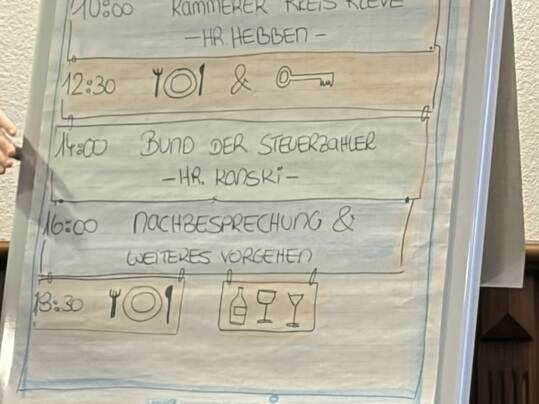 10:00 KÄMMERER KREIS KLEVE
-HR. HEBBEN-
12:30 &
14:00 BUND DER STEUERZAHLER
-HR. KONSKI-
16:00 NACHBESPRECHUNG &
WEITERES VORGEHEN
18:30